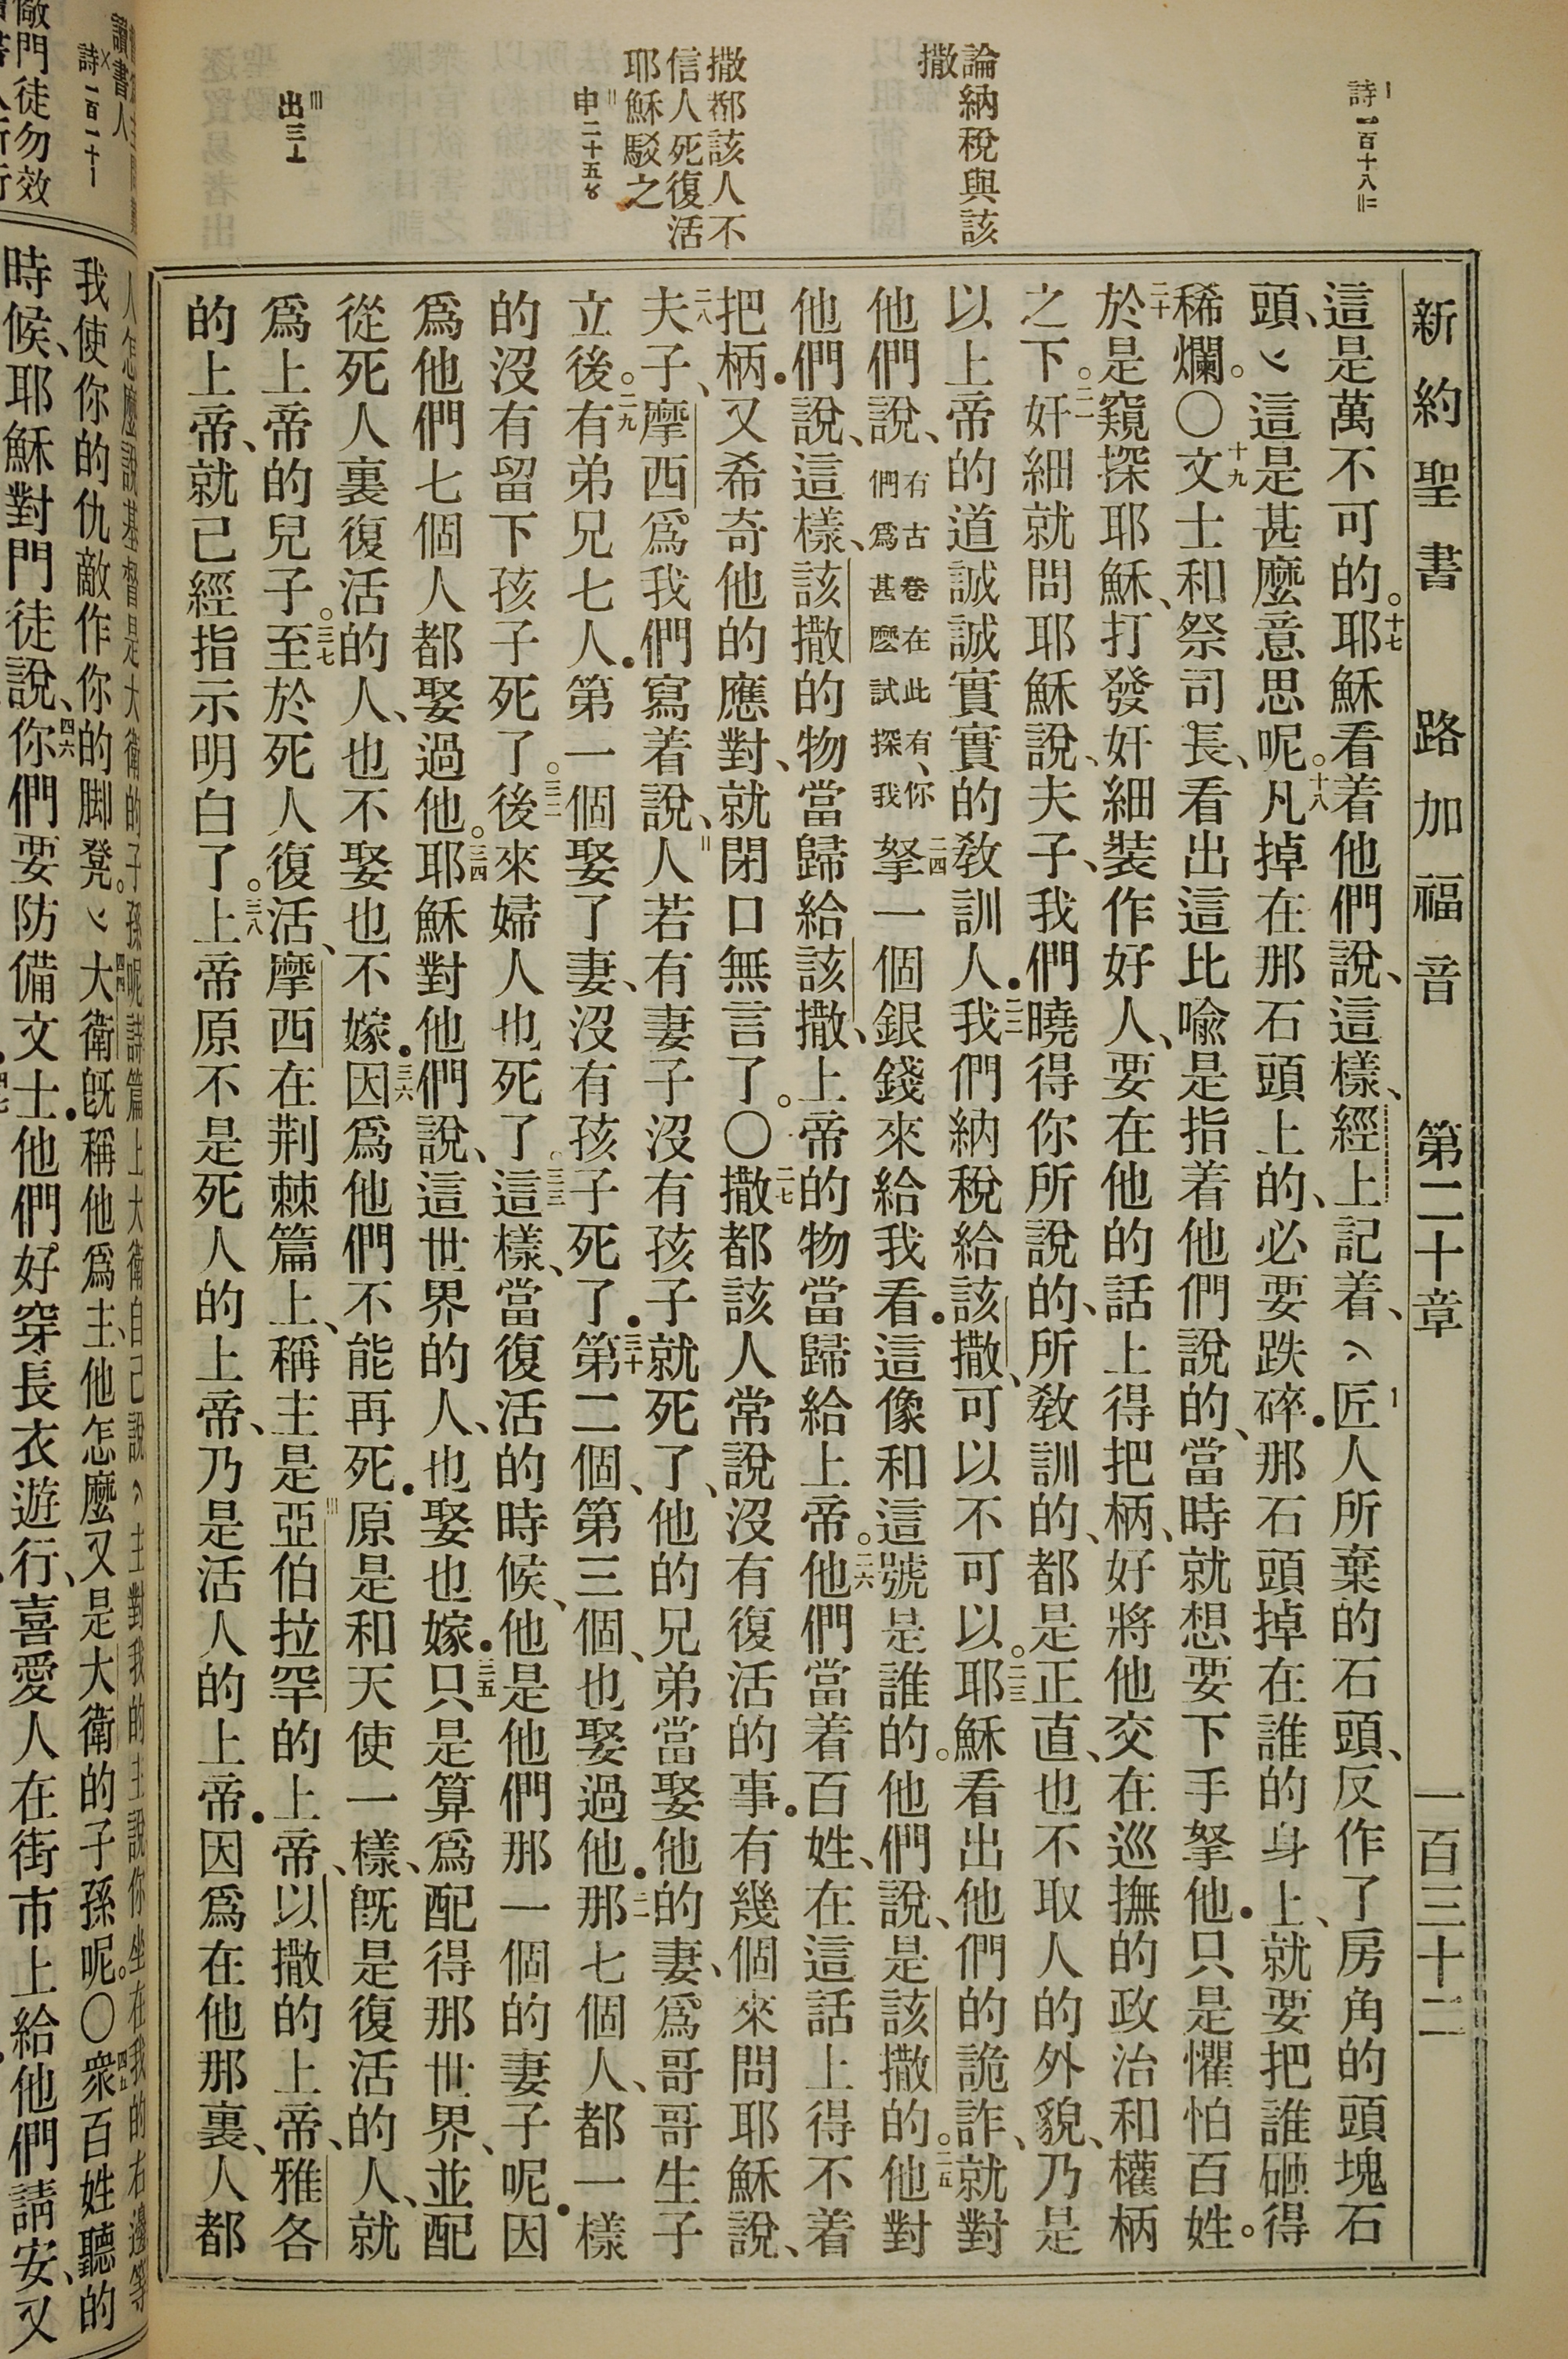 新約聖書 路加福音 第二十章 一百三十二
詩一百十八
論納稅與該
撒
撒都該人不
信人死復活
耶穌駁之
申二十五
出三
這是萬不可的。十七耶穌看着他們說、這樣、經上記着、匠人所棄的石頭、反作了房角的頭塊石
頭、這是甚麼意思呢。十八凡掉在那石頭上的、必要跌碎．那石頭掉在誰的身上、就要把誰砸得
稀爛。〇十九文士和祭司長、看出這比喻是指着他們說的、當時就想要下手拏他．只是懼怕百姓。
二十於是窺探耶穌、打發奸細裝作好人、要在他的話上得把柄、好將他交在巡撫的政治和權柄
之下。二一奸細就問耶穌說、夫子、我們曉得你所說的、所教訓的、都是正直、也不取人的外貌、乃是
以上帝的道誠誠實實的教訓人．二二我們納稅給該撒、可以不可以。二三耶穌看出他們的詭詐、就對
他們說、有古卷在此有、你們爲甚麼試探我二四拏一個銀錢來給我看．這像和這號是誰的。他們說、是該撒的。二五他對
他們說、這樣、該撒的物當歸給該撒、上帝的物當歸給上帝。二六他們當着百姓、在這話上得不着
把柄．又希奇他的應對、就閉口無言了。〇二七撒都該人常說沒有復活的事．有幾個來問耶穌說、
二八夫子、摩西爲我們寫着說、人若有妻子沒有孩子就死了、他的兄弟當娶他的妻、爲哥哥生子
立後。二九有弟兄七人．第一個娶了妻、沒有孩子死了．三十第二個、第三個、也娶過他．三一那七個人、都一樣
的沒有留下孩子死了。三二後來婦人也死了。三三這樣、當復活的時候、他是他們那一個的妻子呢．因
爲他們七個人都娶過他。三四耶穌對他們說、這世界的人、也娶也嫁．三五只是算爲配得那世界、並配
從死人裏復活的人、也不娶也不嫁．三六因爲他們不能再死．原是和天使一樣、既是復活的人、就
爲上帝的兒子。三七至於死人復活、摩西在荆棘篇上、稱主是亞伯拉罕的上帝、以撒的上帝、雅各
的上帝、就已經指示明白了。三八上帝原不是死人的上帝、乃是活人的上帝．因爲在他那裏、人都
讀書人
詩一百一十
儆門徒勿效
人怎麼說基督是大衛的子孫呢詩篇上大衛自己說主對我的主說你坐在我的右邊等
我使你的仇敵作你的脚凳。四四大衛既稱他爲主、他怎麼又是大衛的子孫呢。〇四五衆百姓聽的
時候、耶穌對門徒說、四六你們要防備文士．他們好穿長衣遊行、喜愛人在街市上給他們請安、又